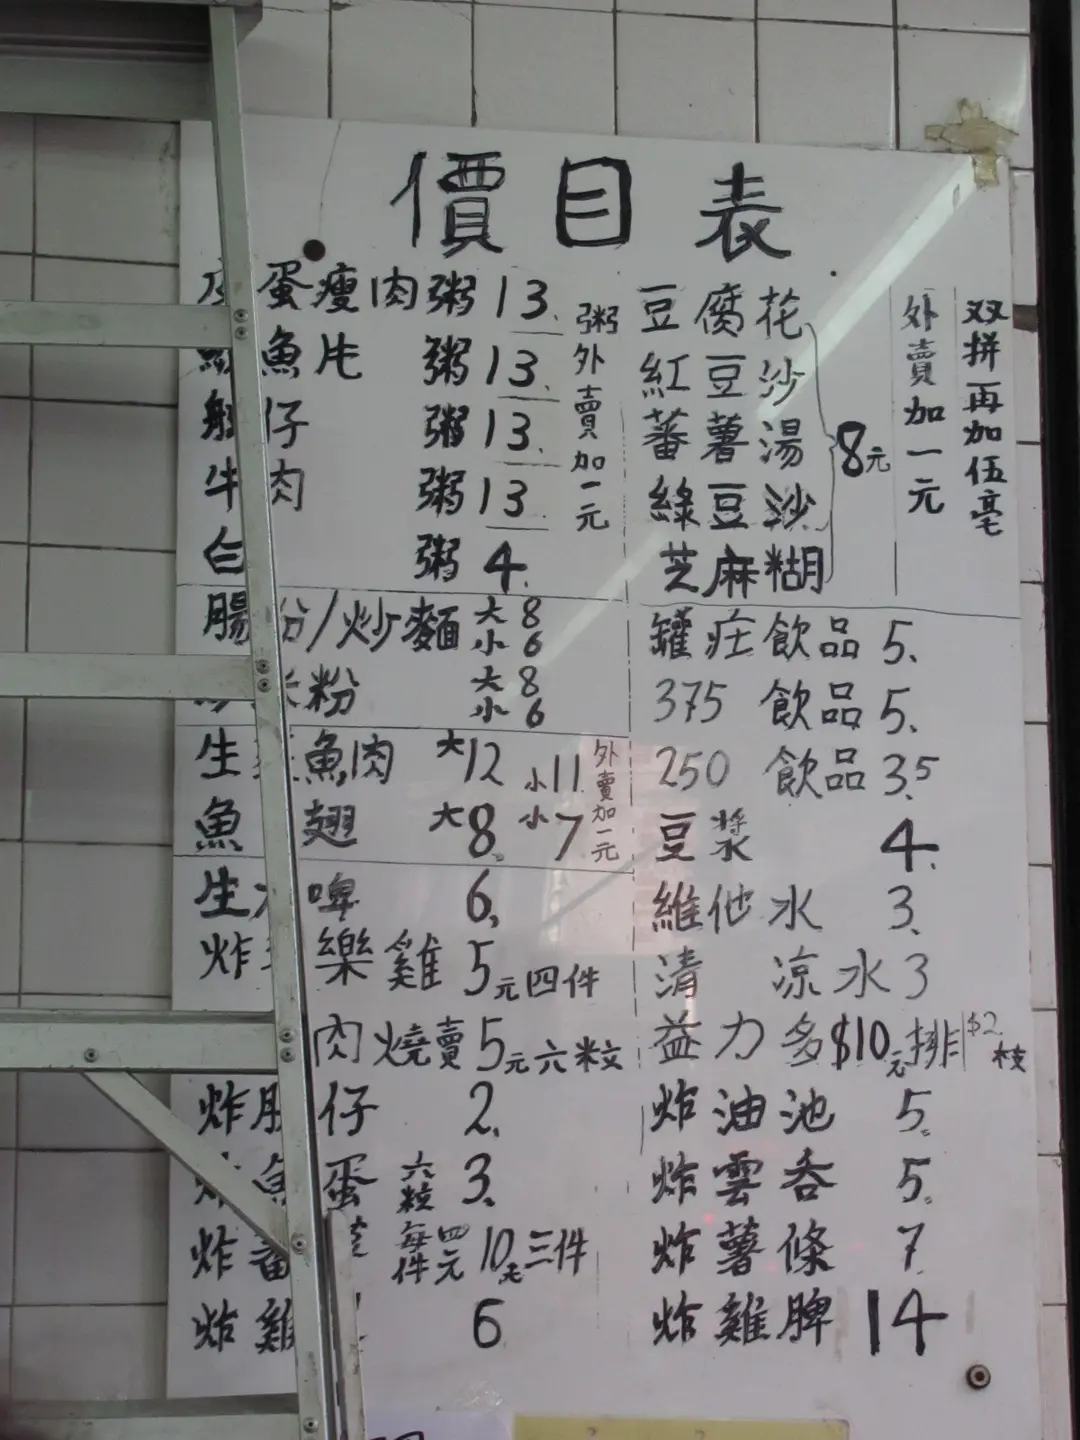 價目表
蛋瘦肉粥 13.
魚片 粥 13.
仔 粥 13.
牛肉 粥 13
粥 4.
粥外賣加一元
腸粉/炒麵 大8 小6
米粉 大8 小6
生 魚肉 大12 小11
魚翅 大8. 小7
外賣加一元
生 啤 6.
炸 樂雞 5元四件
肉燒賣 5元六粒
炸 仔 2.
魚蛋 六粒 3.
炸蕃 每件四元 10元三件
炸雞 6
豆腐花
紅豆沙
蕃薯湯
綠豆沙
芝麻糊
8元
外賣加一元
双拼再加伍毫
罐庄飲品 5.
375 飲品 5.
250 飲品 3.5
豆漿 4.
維他水 3.
清凉水 3
益力多 $10元排 $2枝
炸油池 5.
炸雲吞 5.
炸薯條 7
炸雞脾 14